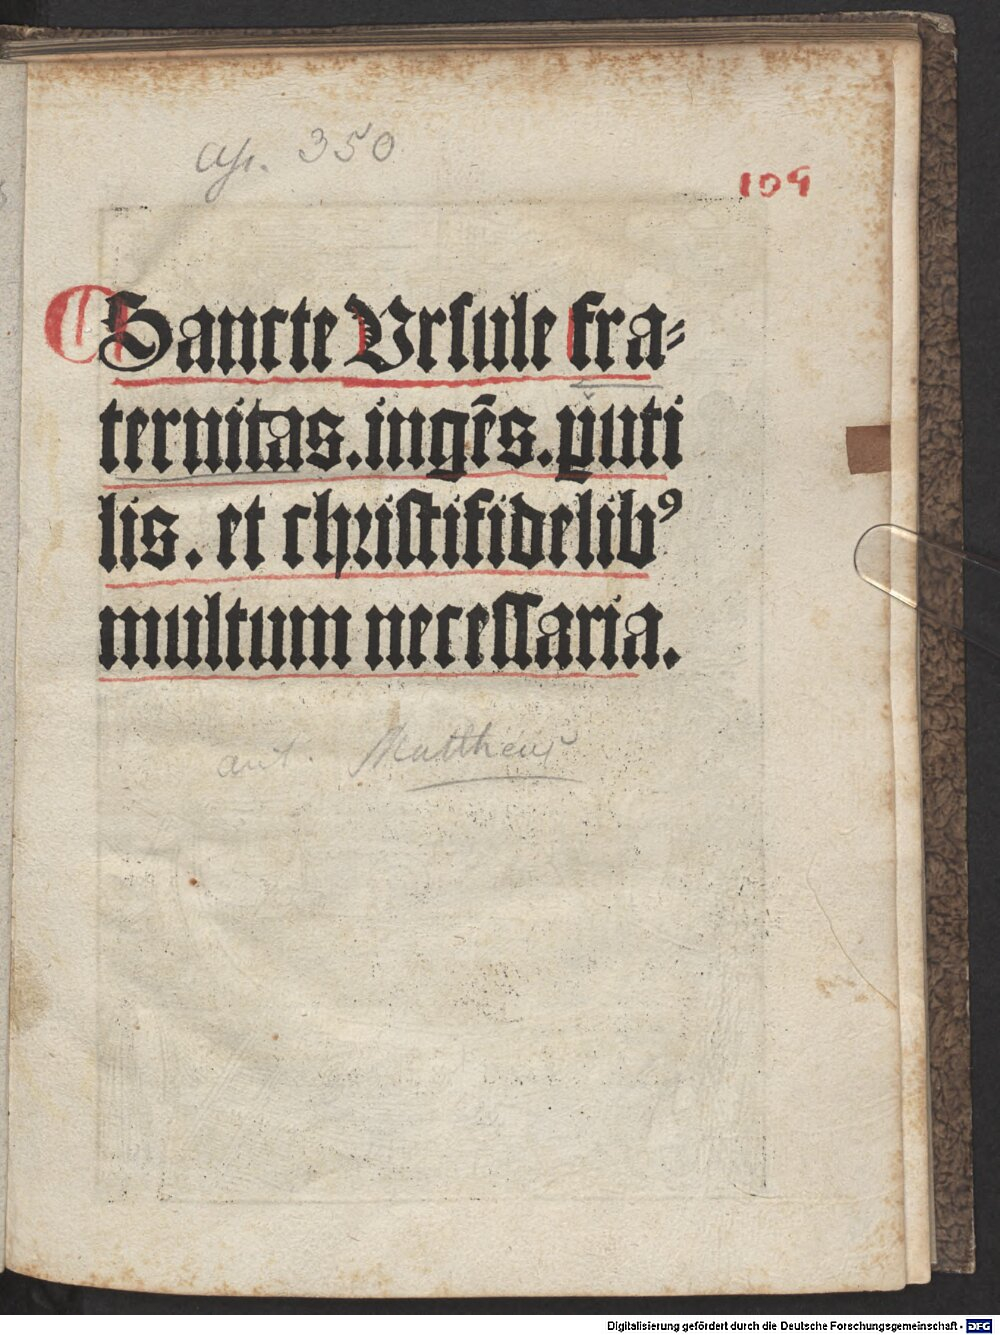 ap. 350
109
Sancte Vrsule fra⸗
ternitas. ingēs. ꝑuti
lis. et christifidelibꝰ
multum necessaria.
aut. Mattheus
Digitalisierung gefördert durch die Deutsche Forschungsgemeinschaft - DFG